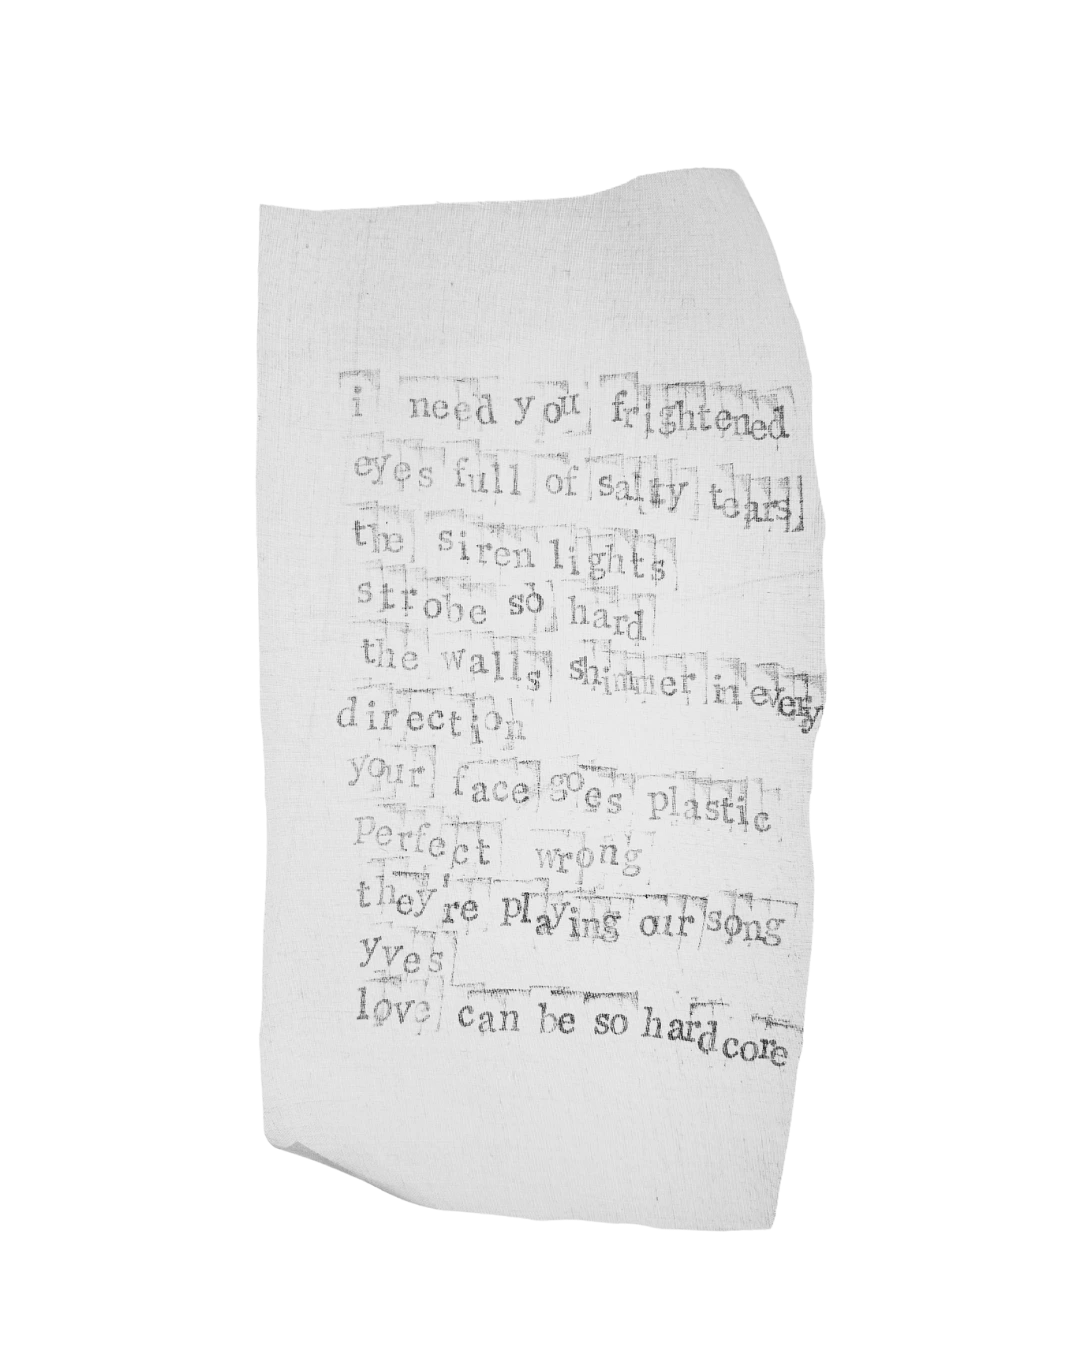 i need you frightened
eyes full of salty tears
the siren lights
strobe so hard
the walls shimmer in every
direction
your face goes plastic
perfect wrong
they're playing our song
yves
love can be so hardcore